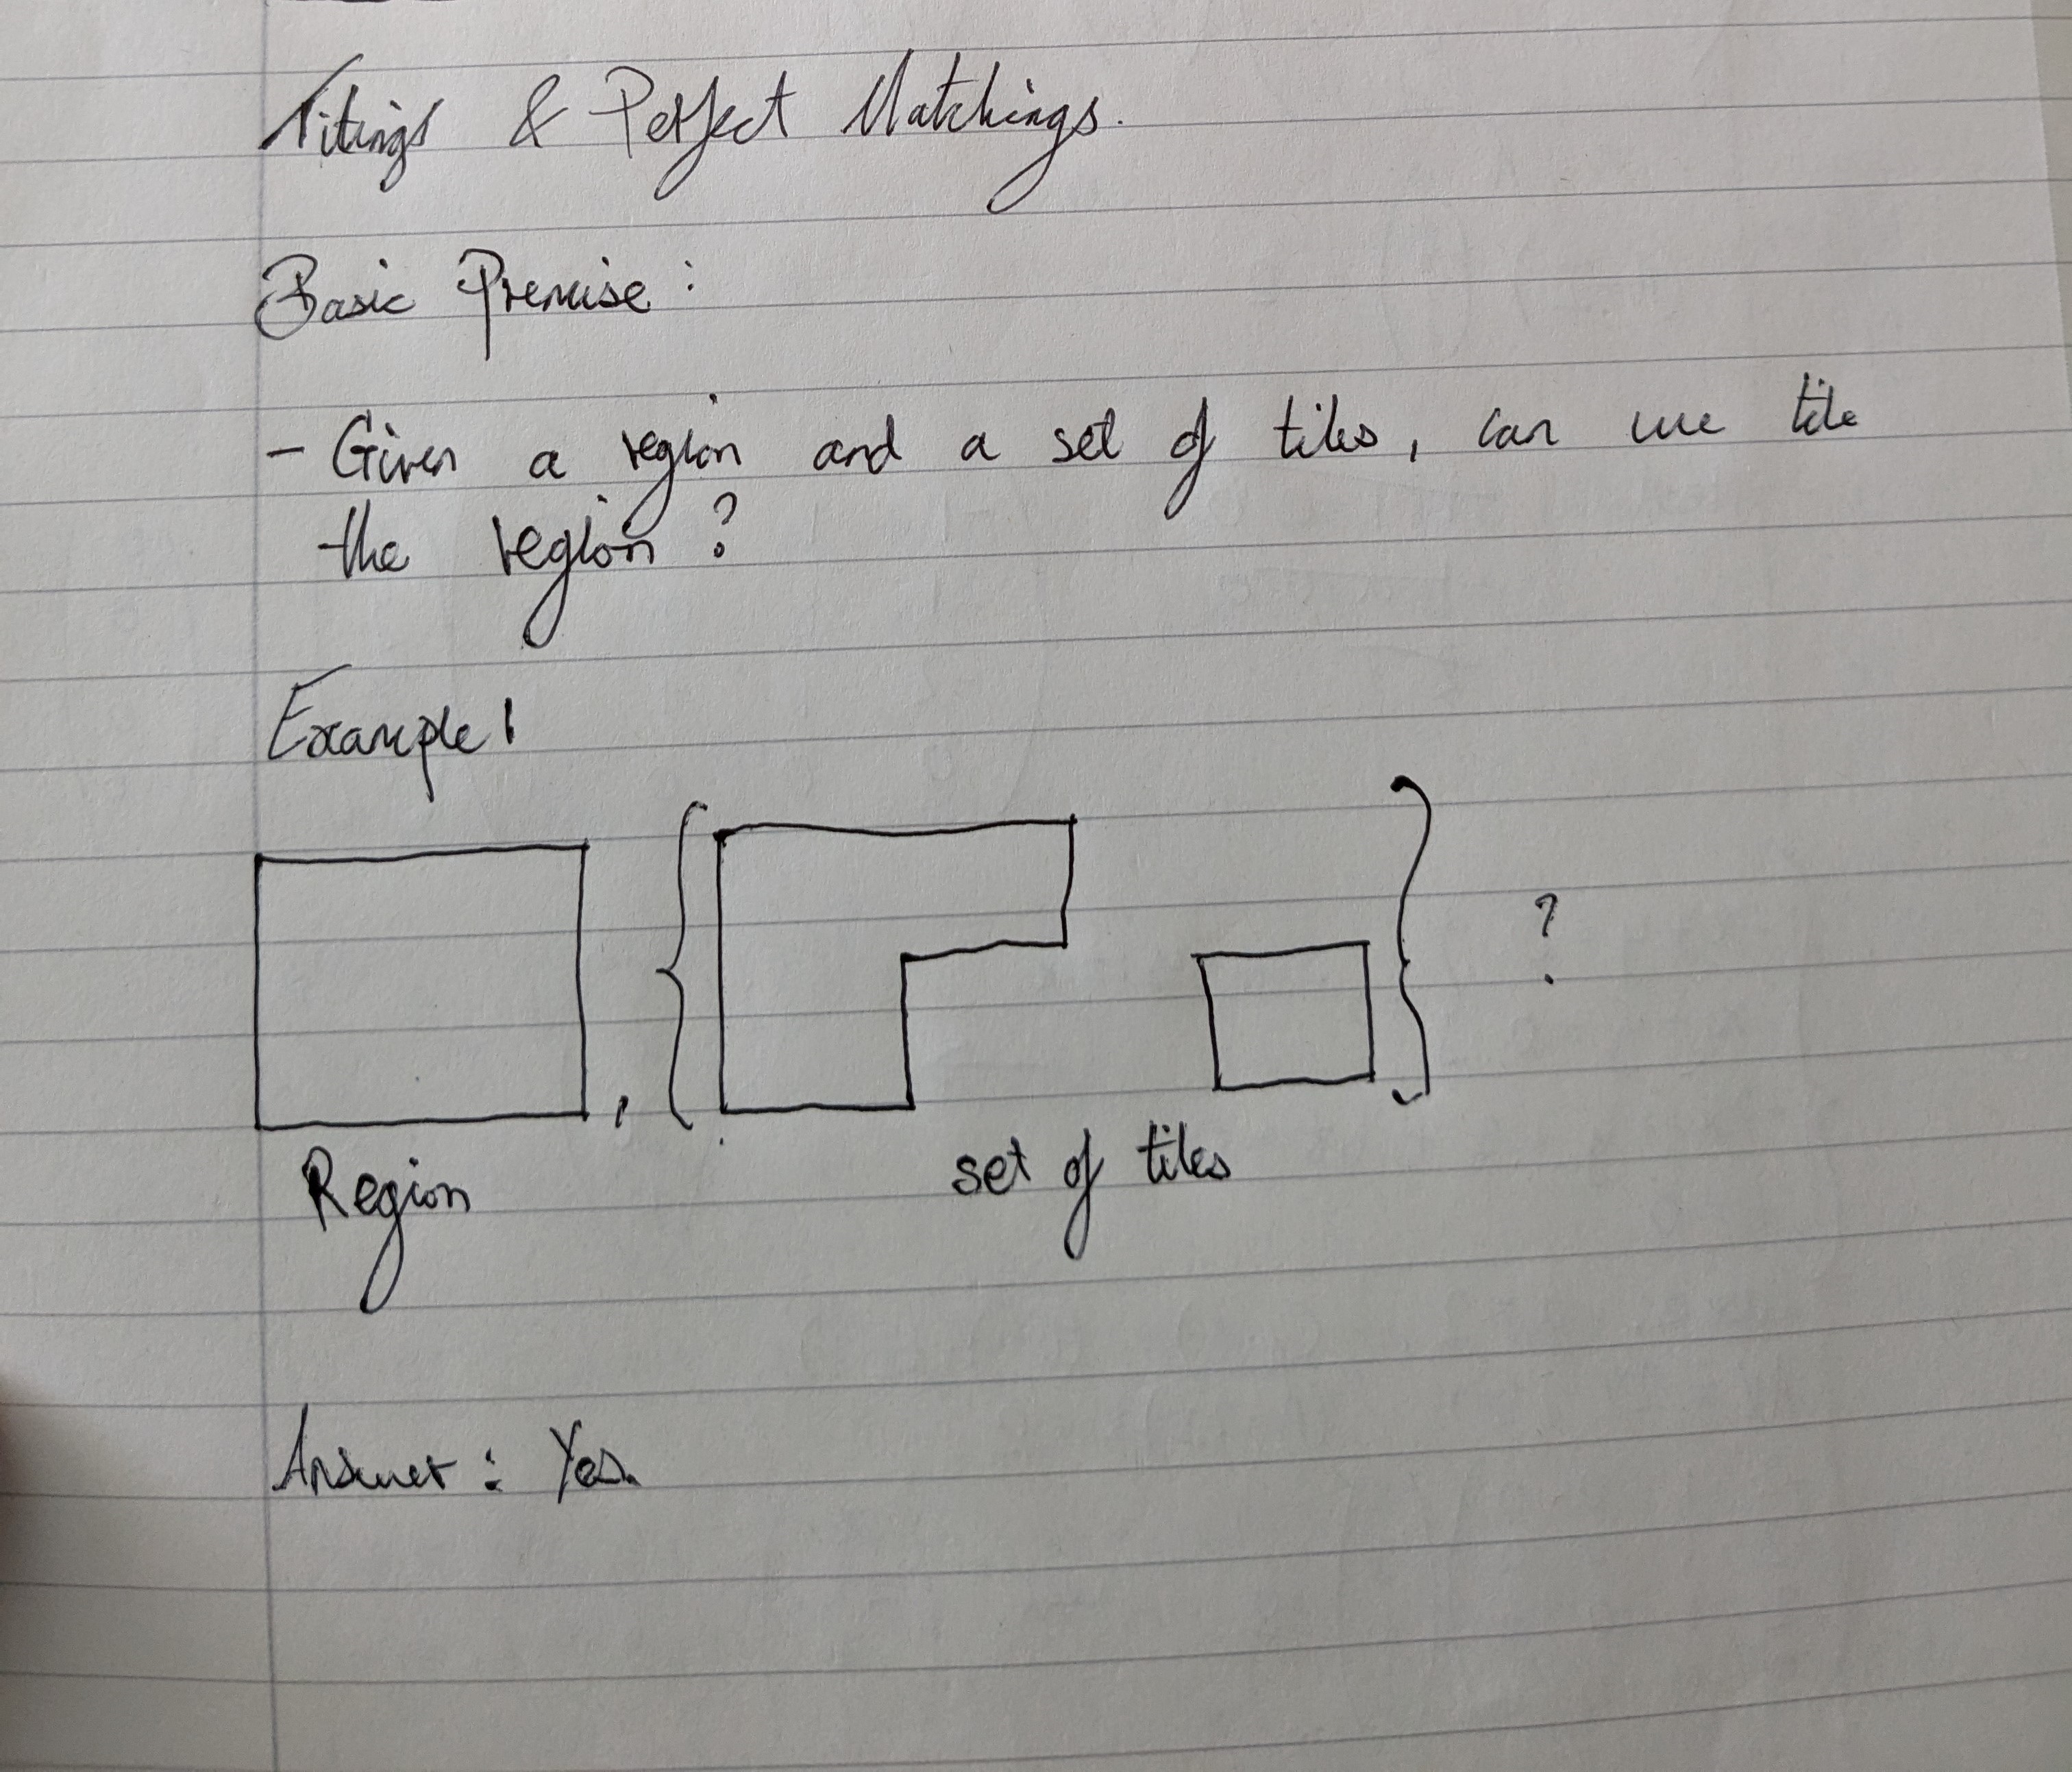 Tilings & Perfect Matchings.
Basic Premise :
- Given a region and a set of tiles, can we tile
the region ?
Example 1
{ , } ?
Region
set of tiles
Answer : Yes.